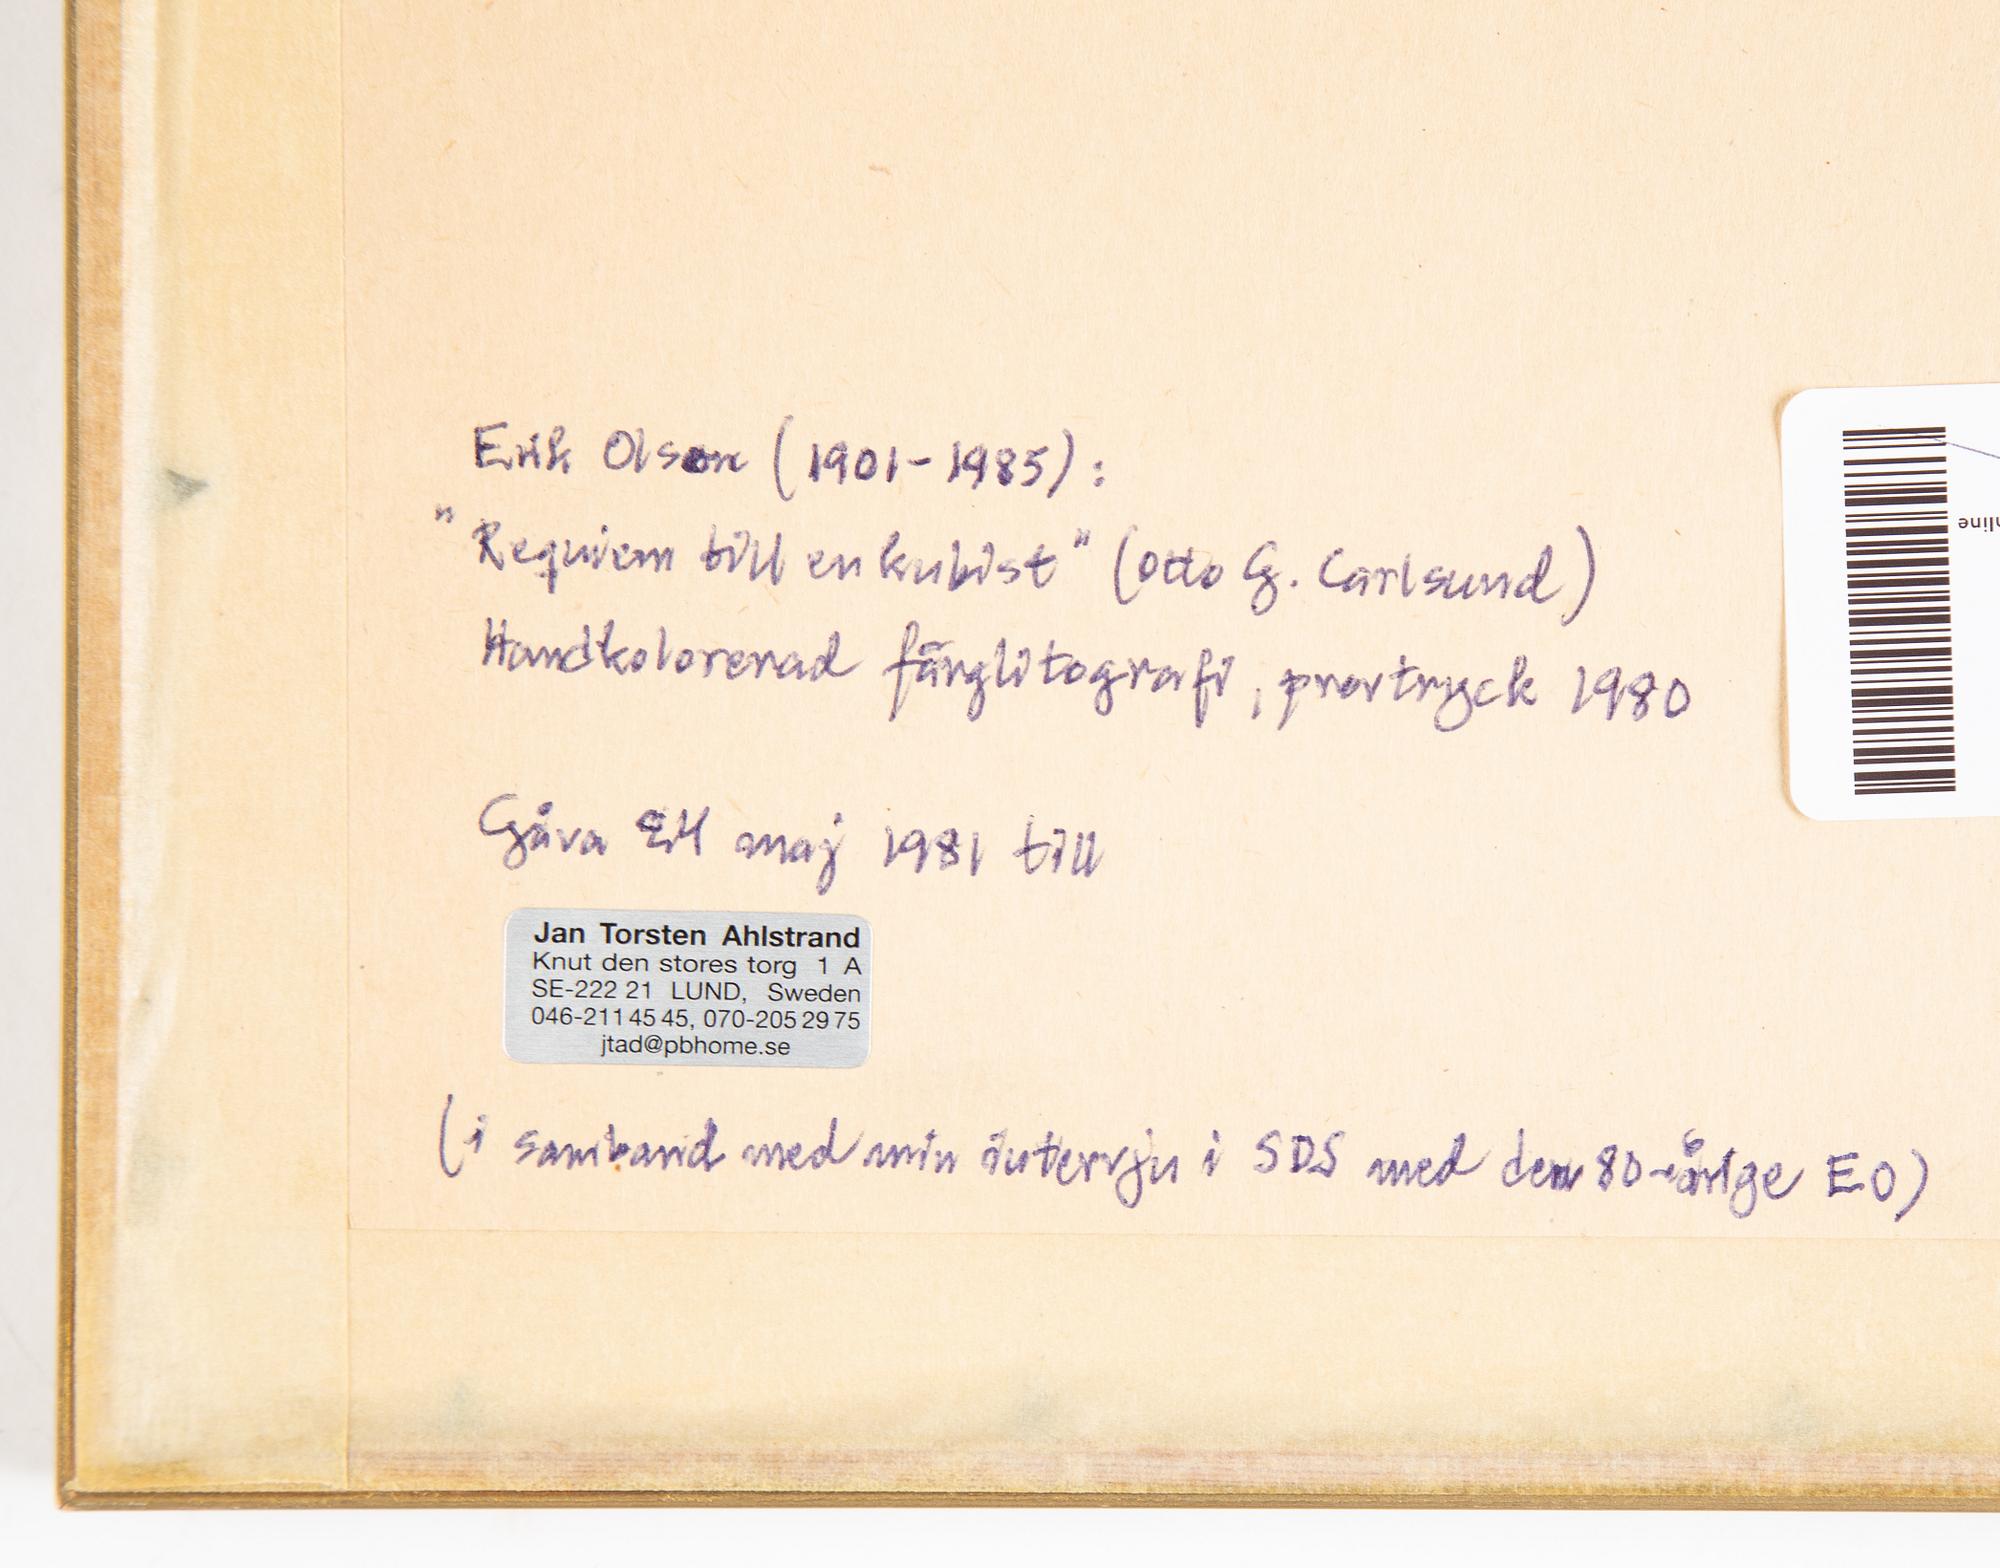 Erik Olson (1901-1985):
"Requiem till en kubist" (Otto G. Carlsund)
Handkolorerad färglitografi, provtryck 1980
Gåva maj 1981 till
Jan Torsten Ahlstrand
Knut den stores torg 1 A
SE-222 21 LUND, Sweden
046-211 45 45, 070-205 29 75
jtad@pbhome.se
(i samband med min intervju i SDS med den 80-årige EO)